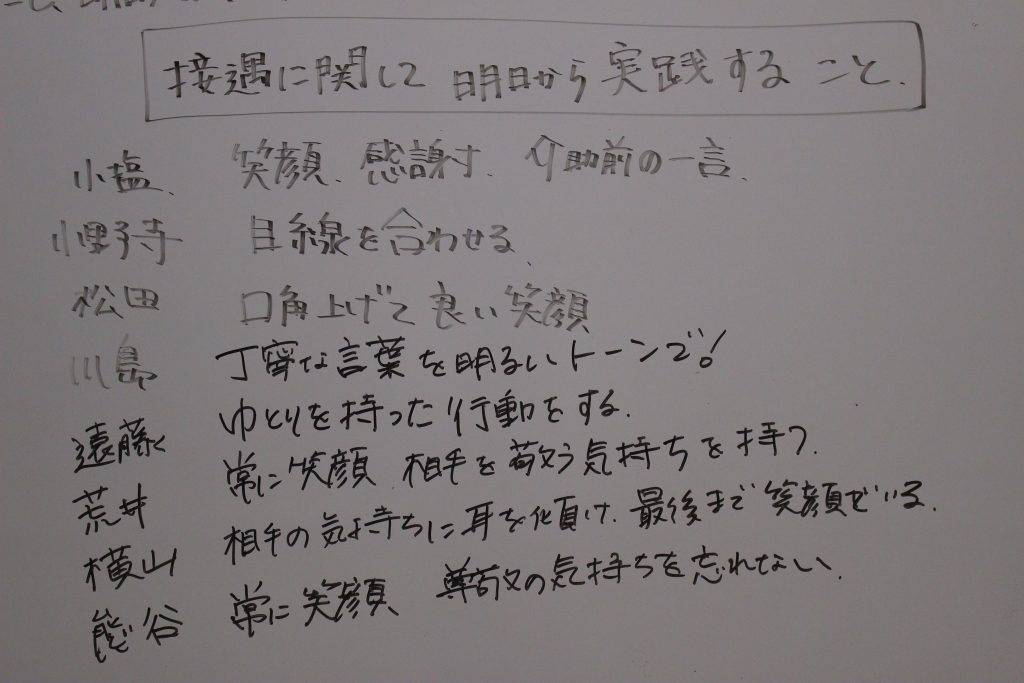 接遇に関して 明日から実践すること.
小塩、 笑顔、感謝、介助前の一言、
小野寺 目線を合わせる、
松田 口角上げて良い笑顔
川島 丁寧な言葉を明るいトーンで!
遠藤 ゆとりを持った行動をする.
荒井 常に笑顔 相手を敬う気持ちを持つ.
横山 相手の気持ちに耳を傾け、最後まで笑顔でいる.
熊谷 常に笑顔 尊敬の気持ちを忘れない.